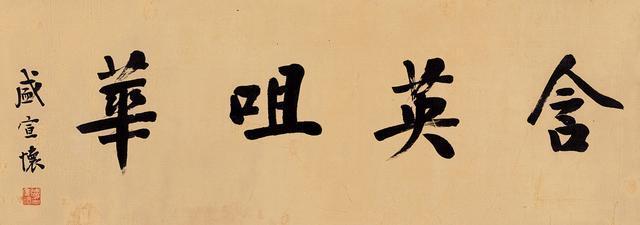 含英咀華
盛宣懷